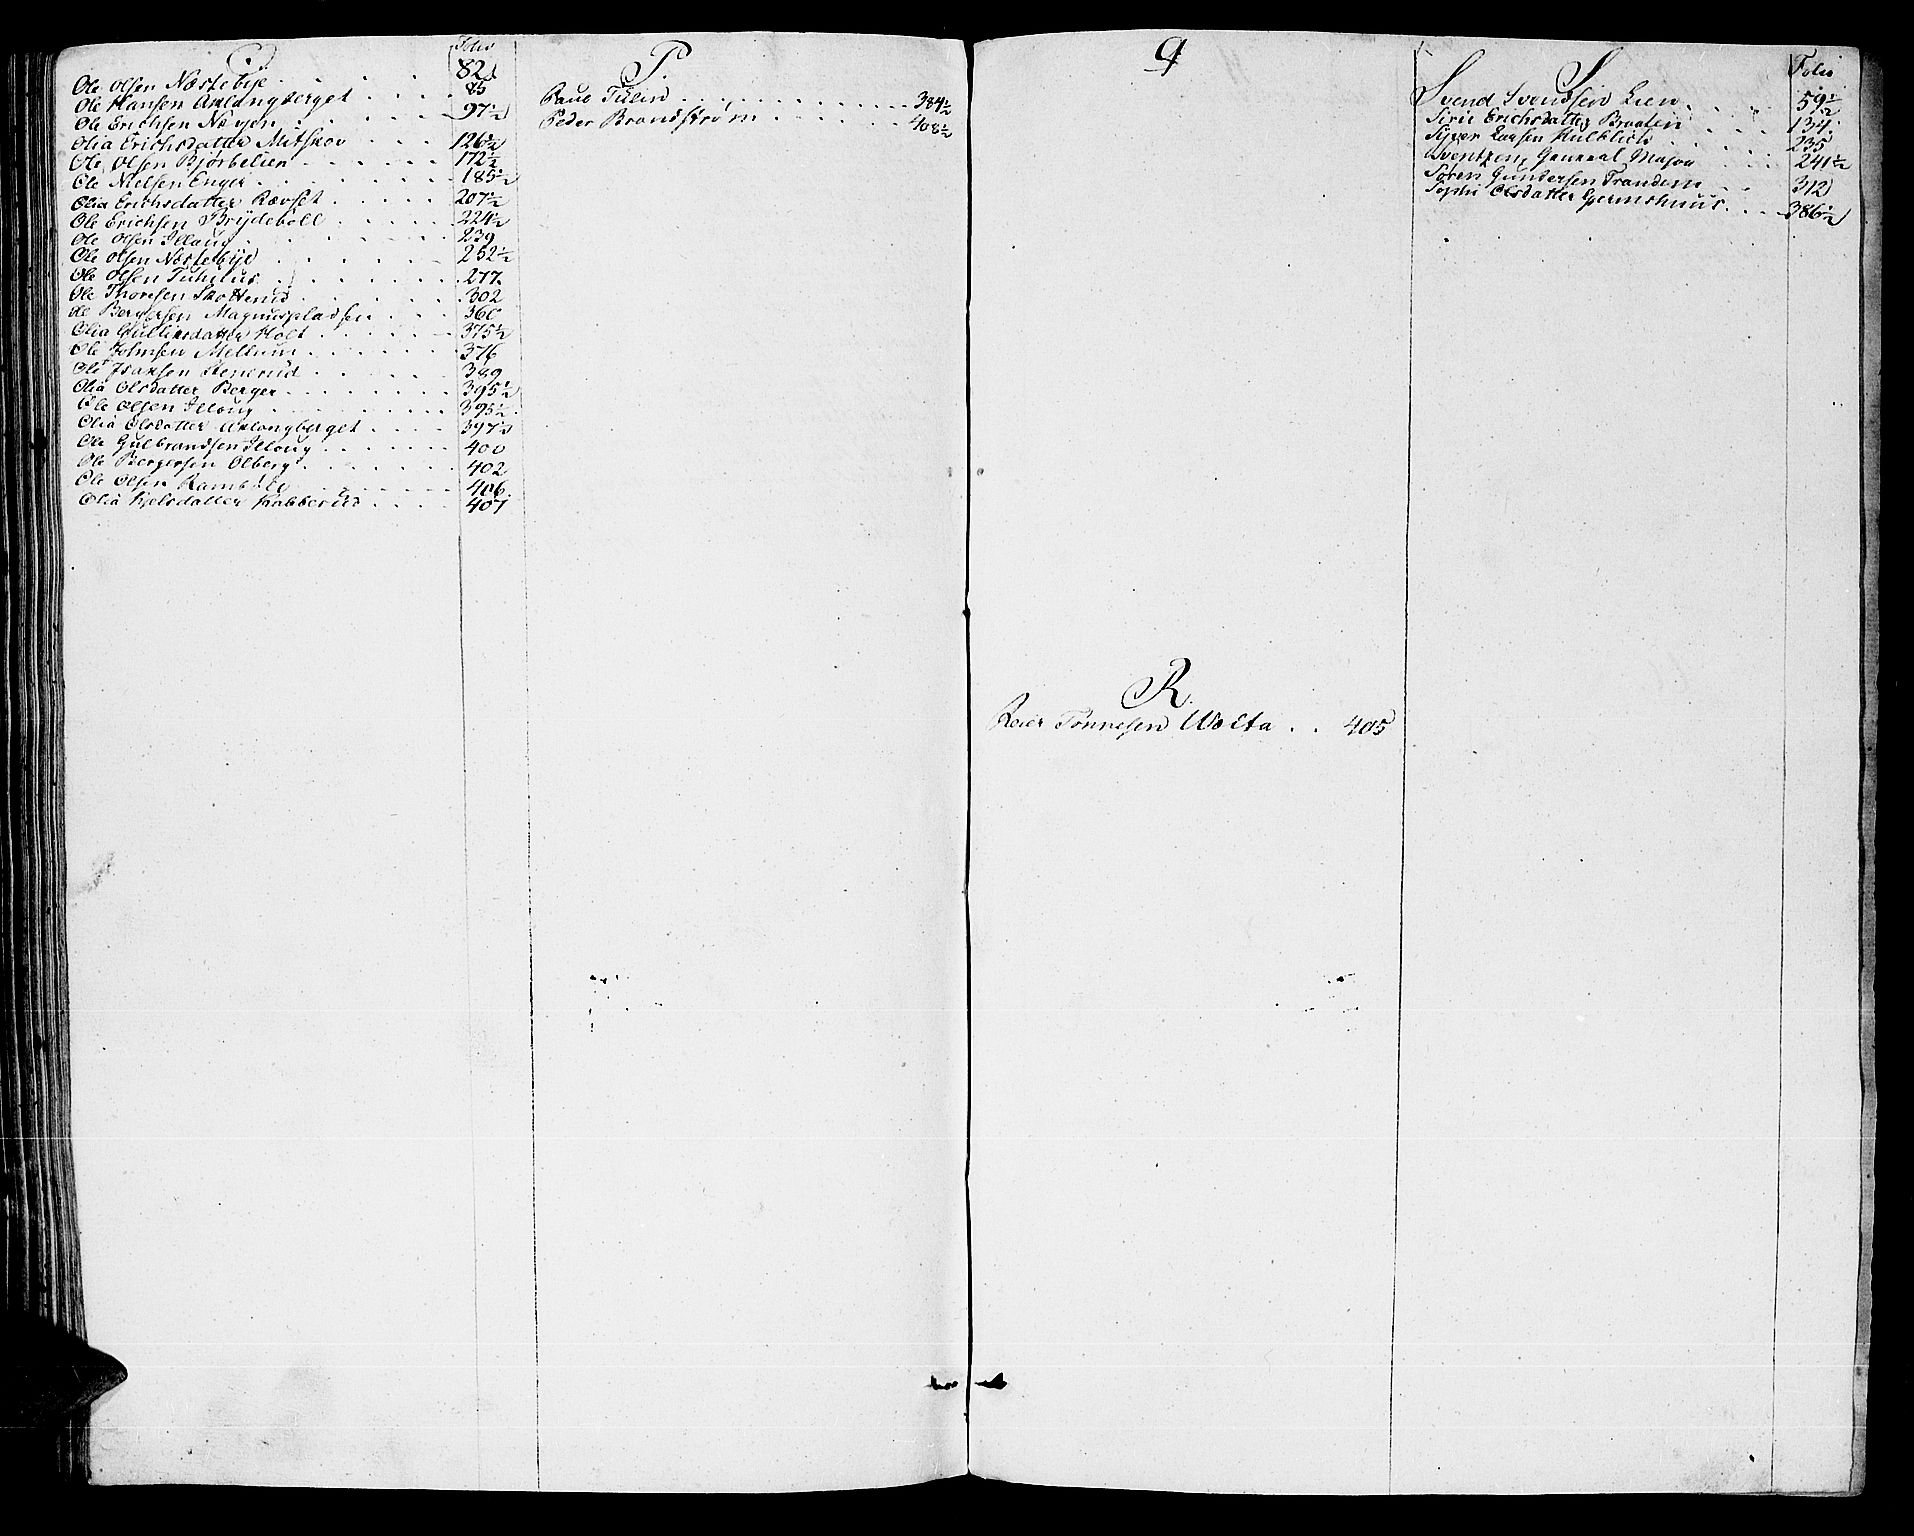 O Folio
Ole Olsen Næstebye 82
Ole Hansen Aklangberget 85
Ole Erichsen Næujen 97½
Olia Erichsdatter Mitskov 126½
Ole Olsen Bjørbelien 172½
Ole Nielsen Enger 185½
Olia Erichsdatter Rævset 207½
Ole Erichsen Brydeboll 224½
Ole Olsen Illoug 239
Ole Olsen Næstebye 252½
Ole Olsen Tuhuus 277
Ole Thoresen Skotterud 302
Ole Bergersen Magnuspladsen 360
Olia Gulliksdatter Holt 375½
Ole Johnsen Mellum 376
Ole Isaksen Stenerud 389
Olia Olsdatter Berger 395½
Ole Olsen Illoug 395½
Olia Olsdatter Aklangberget 397½
Ole Gulbrandsen Illoug 400
Ole Bergersen Olberg 402
Ole Olsen 406
Olia Kjelsdatter Kabberud 407
P
Paul Tulin 384½
Peder Brandstrøm 408½
Q
R
Reier Tønnesen Wolta 405
S Folio
Svend Svendsen Lien 59½
Sirie Erichsdatter Braaten 134
Syver Larsen Hulblich 235
General Major 241½
Søren Gundersen Trandem 312
Sophi Olsdatter Germshuus 386½